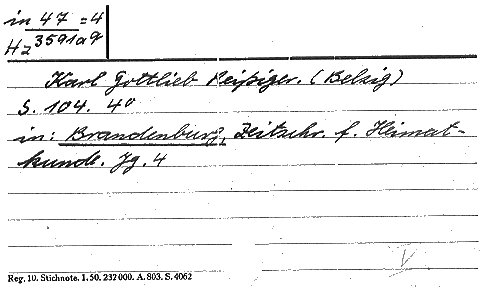 in 47 = 4
Hz 3591a9
Karl Gottlieb Reißiger. (Belzig)
S. 104. 4°
in: Brandenburg, Zeitschr. f. Heimat-
kunde. Jg. 4
V
Reg. 10. Stichnote. 1. 50. 232000. A. 803. S. 4062